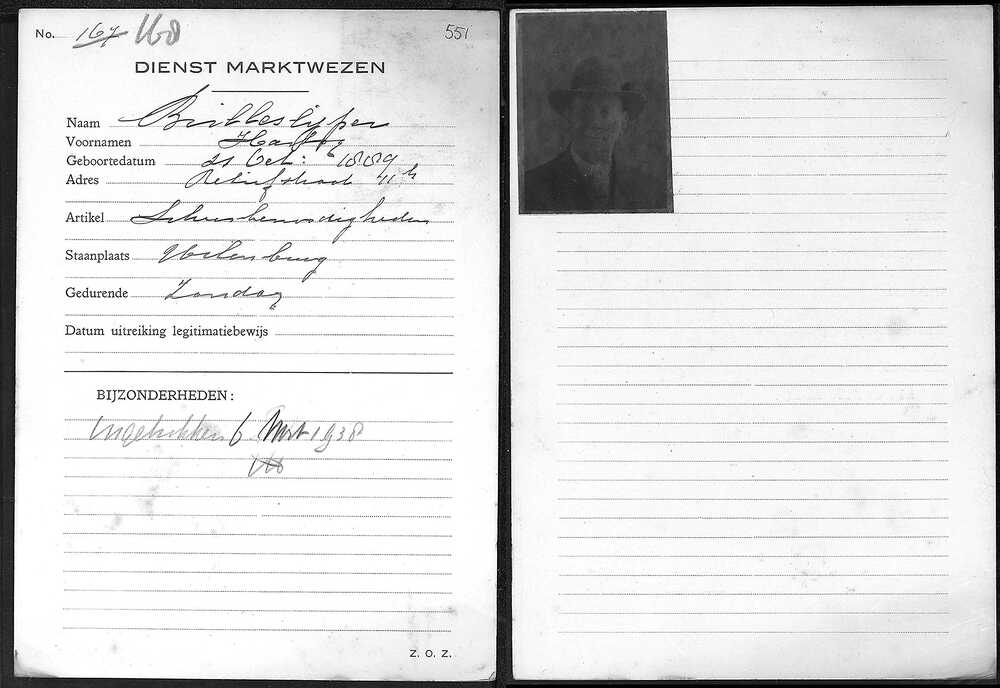 No. 167 168 551
DIENST MARKTWEZEN
Naam
Voornamen Hartog
Geboortedatum 21 Oct: 1889
Adres Retiefstraat 41 h
Artikel
Staanplaats Uilenburg
Gedurende Zondag
Datum uitreiking legitimatiebewijs
BIJZONDERHEDEN:
Ingetrokken 6 Mrt 1938
Z. O. Z.